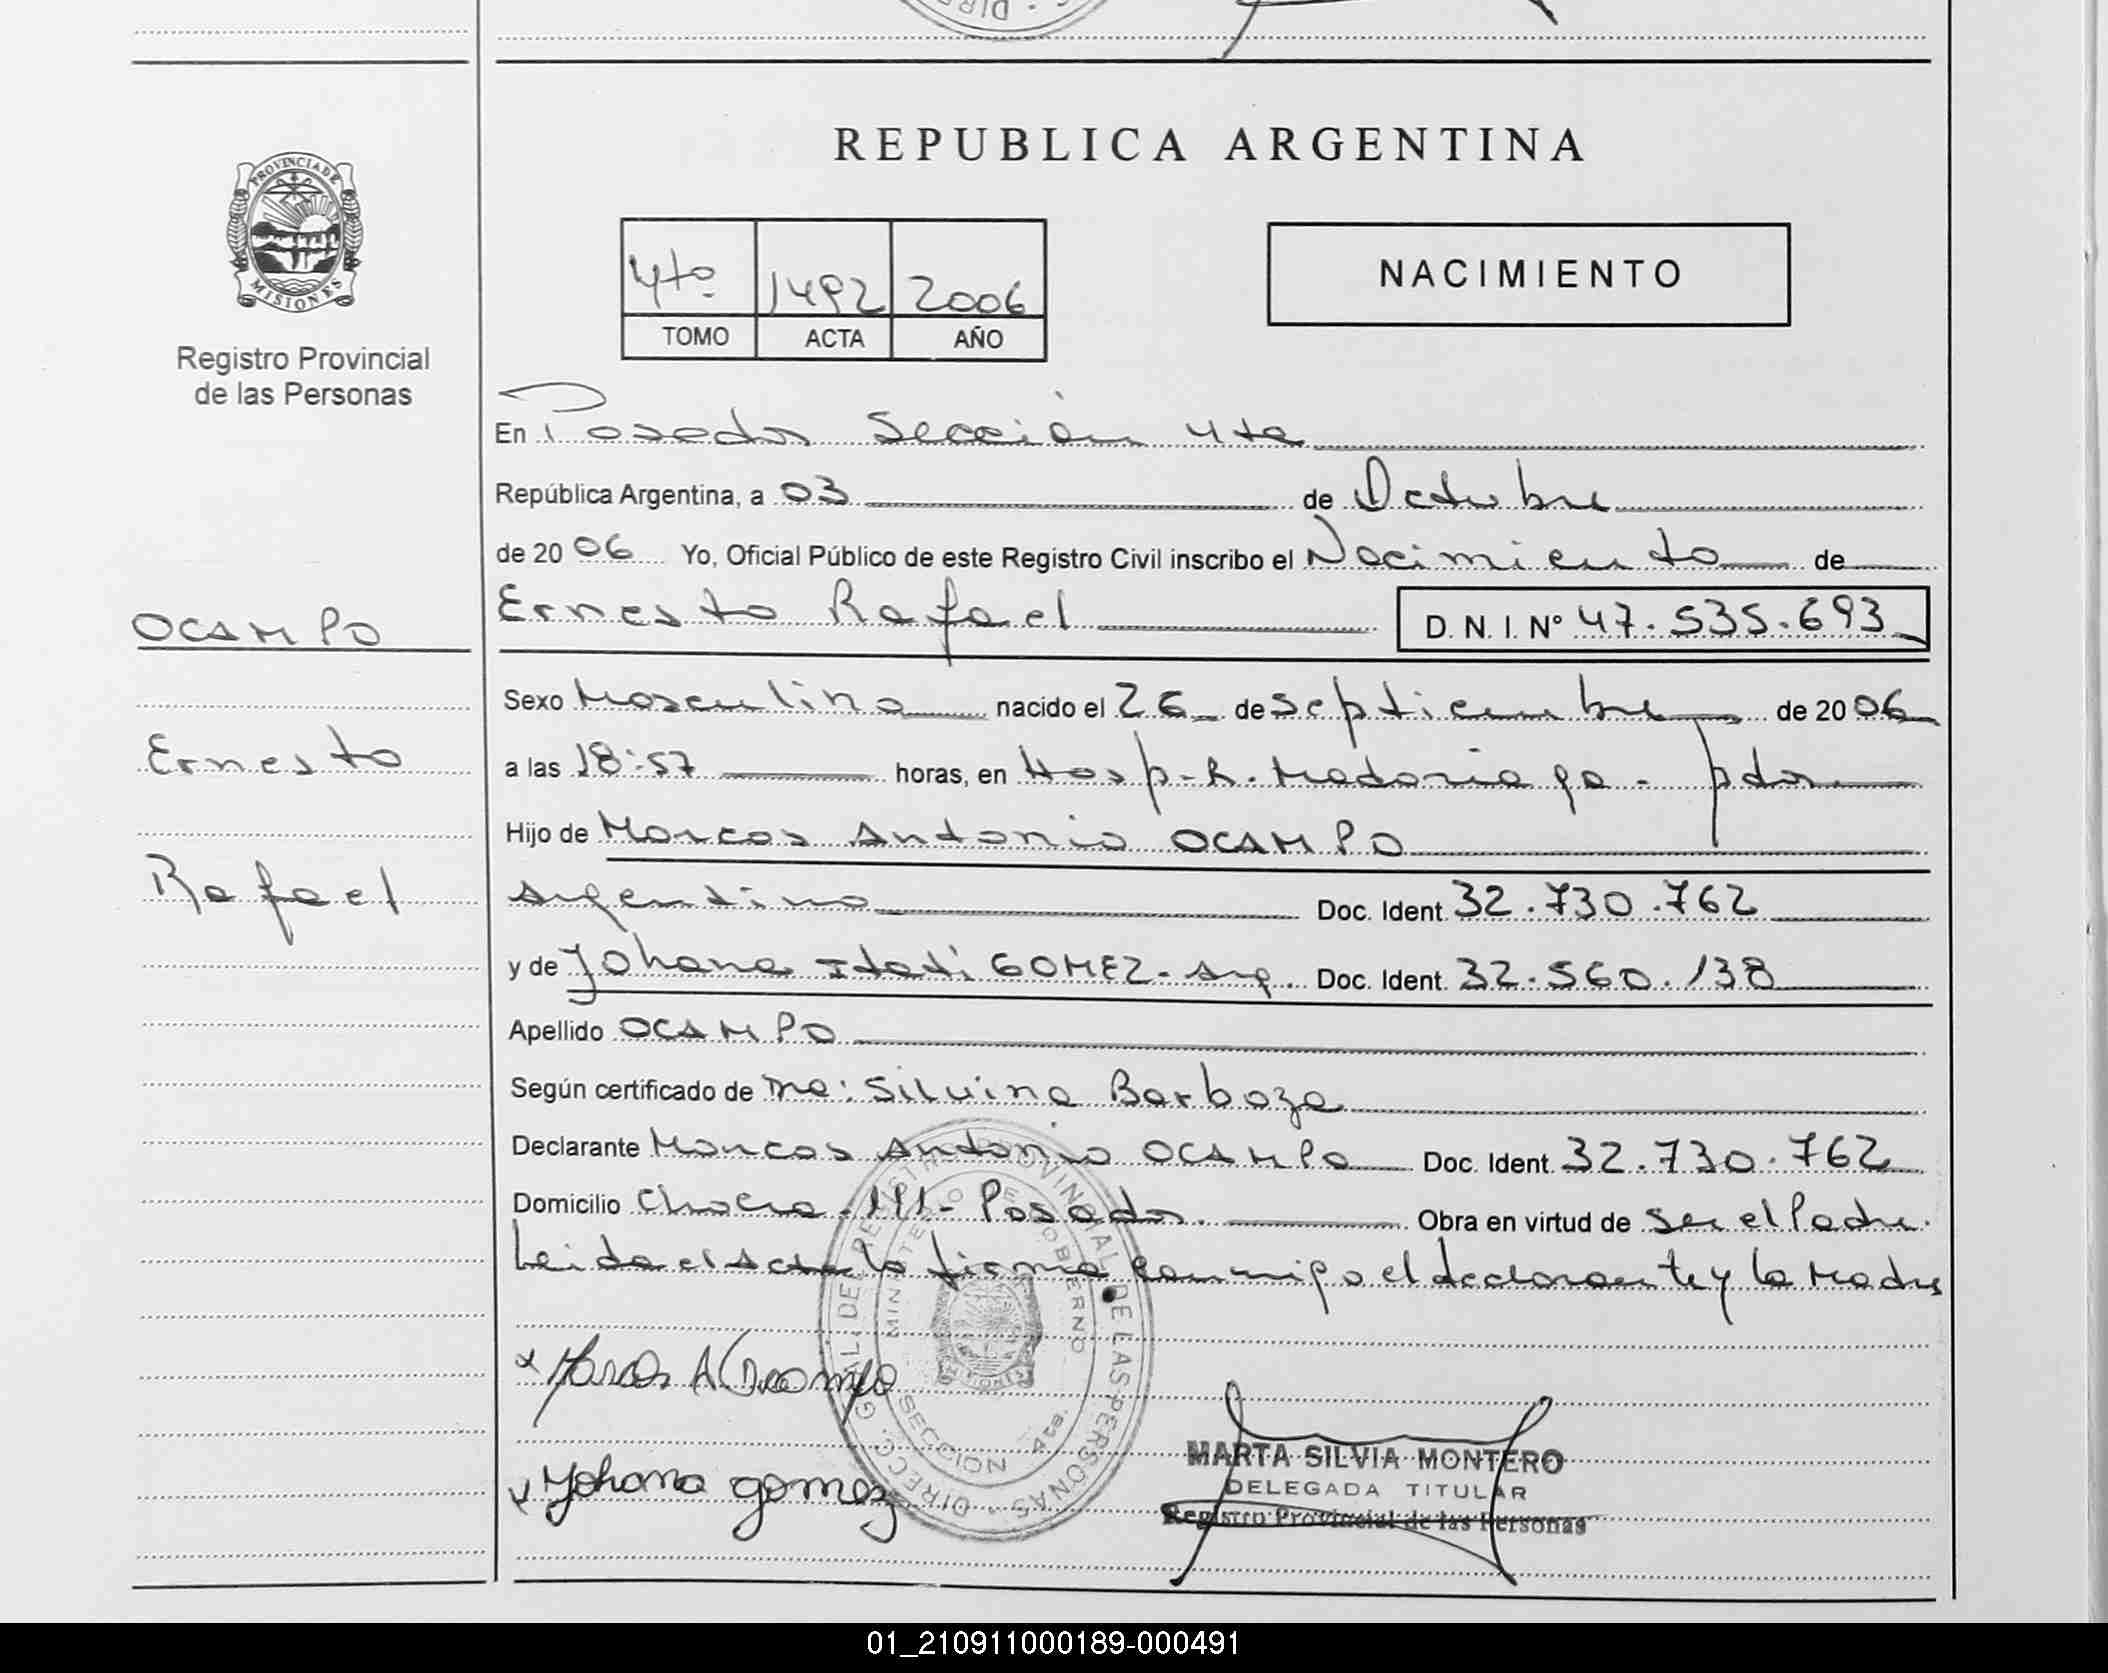 REPUBLICA ARGENTINA
PROVINCIA DE
MISIONES
Registro Provincial
de las Personas
4to 1492 2006
TOMO ACTA AÑO
NACIMIENTO
En Posadas Sección 4ta
República Argentina, a 03 de Octubre
de 2006 Yo, Oficial Público de este Registro Civil inscribo el Nacimiento de
Ernesto Rafael D. N. I. Nº 47.535.693
OCAMPO
Ernesto
Rafael
Sexo Masculino nacido el 26 de septiembre de 2006
a las 18:57 horas, en Hosp-R. Madariaga - pdas
Hijo de Marcos Antonio OCAMPO
Argentino Doc. Ident. 32.730.762
y de Johana Itati GOMEZ - Arg. Doc. Ident. 32.560.138
Apellido OCAMPO
Según certificado de Silvina Barboza
Declarante Marcos Antonio OCAMPO Doc. Ident. 32.730.762
Domicilio Chacra - Posadas. Obra en virtud de ser el Padre.
Leida el Acta la firma conmigo el declarante y la Madre
Marcos A Ocampo
Yohana gomez
DIRECC. GRAL. DEL REGISTRO PROVINCIAL DE LAS PERSONAS
MINISTERIO DE GOBIERNO
SECCION 4ta.
MARTA SILVIA MONTERO
DELEGADA TITULAR
Registro Provincial de las Personas
01_210911000189-000491